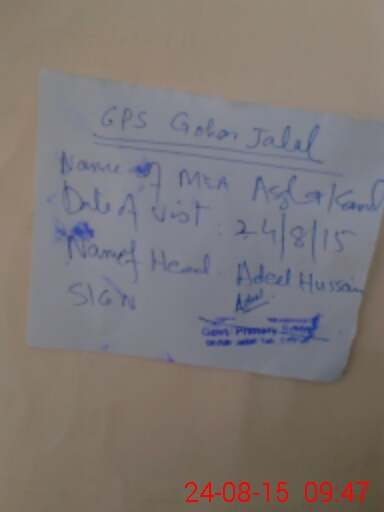 GPS Gohar Jalal
Name of MEA
Date of Visit : 24/8/15
Name of Head. Adeel Hussain
SIGN Adeel
Govt. Primary School
24-08-15 09:47